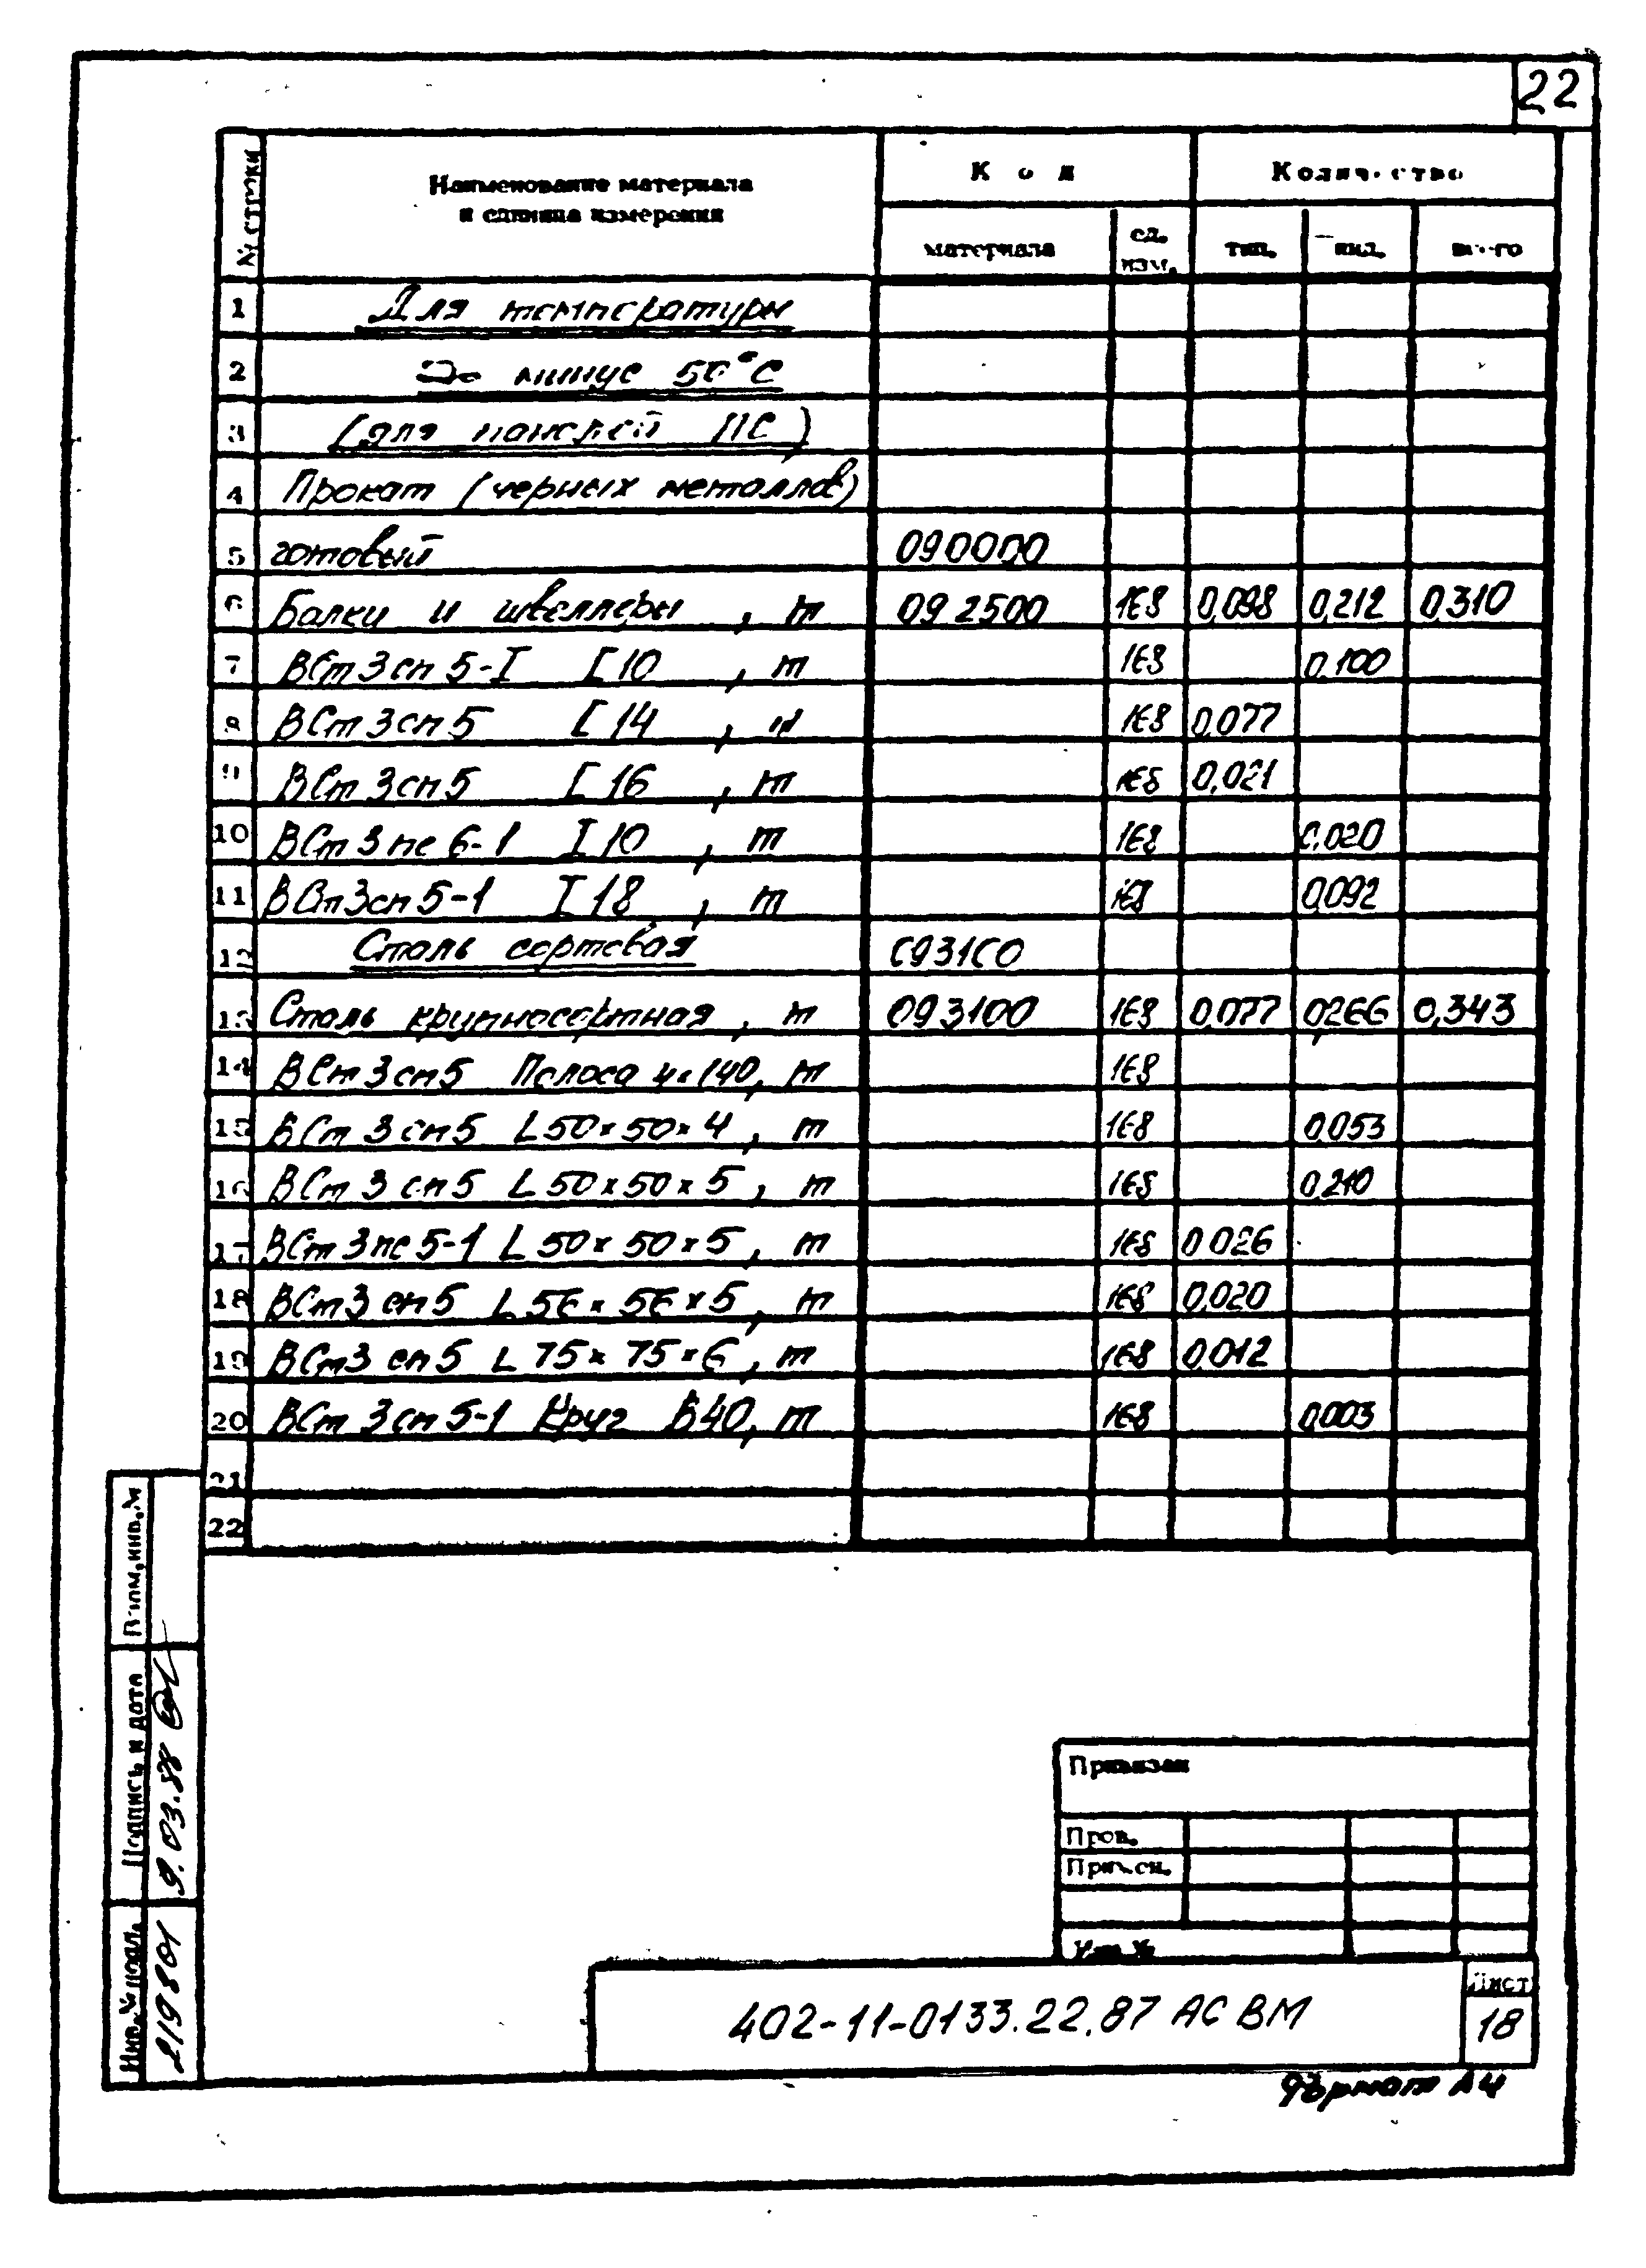 22
№ строки
Наименование материала
и единица измерения
Код
Количество
материала
ед. изм.
тип.
инд.
всего
1 Для температуры
2 До минус 50°С
3 (для панелей ПС)
4 Прокат (черных металлов)
5 готовый 090000
6 Балки и швеллеры, т 092500 1Е8 0,098 0,212 0,310
7 ВСт3сп5-I [10, т 1Е8 0,100
8 ВСт3сп5 [14, т 1Е8 0,077
9 ВСт3сп5 [16, т 1Е8 0,021
10 ВСт3пс6-1 I10, т 1Е8 0,020
11 ВСт3сп5-1 I18, т 1Е8 0,092
12 Сталь сортовая 093100
13 Сталь крупносортная, т 093100 1Е8 0,077 0,266 0,343
14 ВСт3сп5 Полоса 4×140, т 1Е8
15 ВСт3сп5 L50×50×4, т 1Е8 0,053
16 ВСт3сп5 L50×50×5, т 1Е8 0,210
17 ВСт3пс5-1 L50×50×5, т 1Е8 0,026
18 ВСт3сп5 L56×56×5, т 1Е8 0,020
19 ВСт3сп5 L75×75×6, т 1Е8 0,012
20 ВСт3сп5-1 Круг Б40, т 1Е8 0,003
21
22
Взам,инв.№
Подпись и дата
9.03.88
Инв.№подл.
219801
Привязан
Пров.
Инв.№
402-11-0133.22.87 АС ВМ
Лист
18
Формат А4